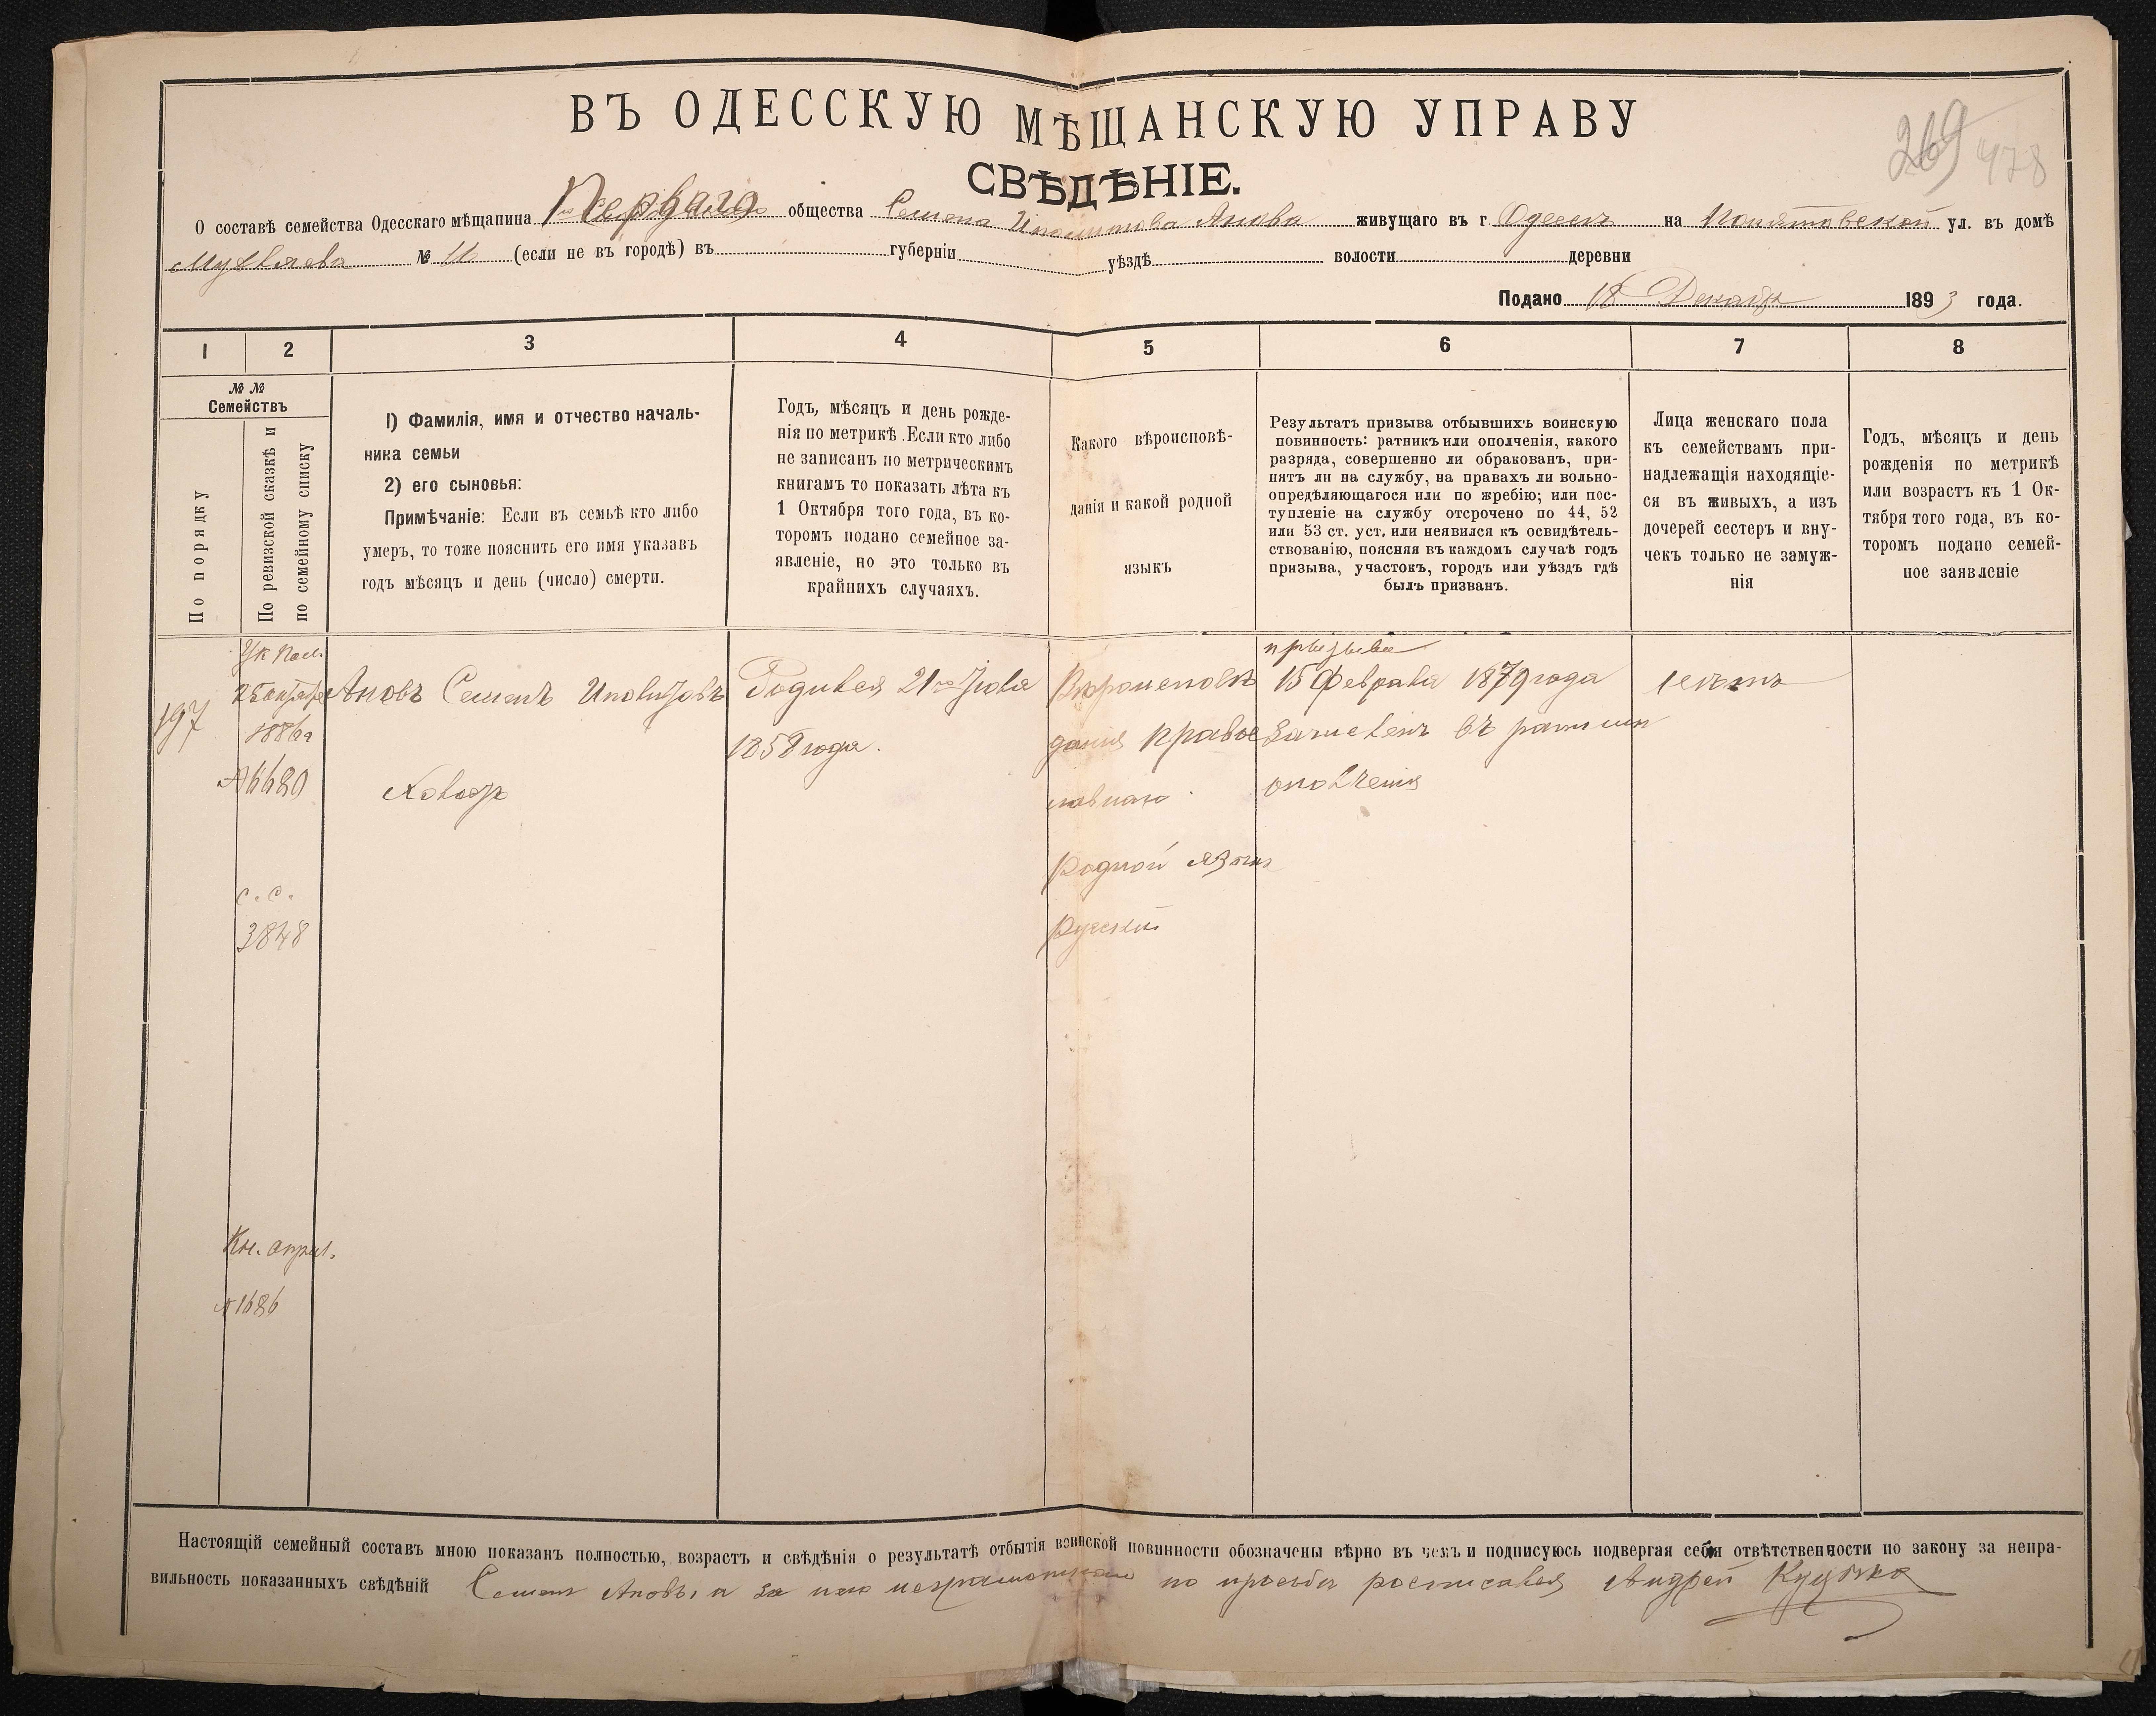 269 478
ВЪ ОДЕССКУЮ МѢЩАНСКУЮ УПРАВУ
СВѢДѢНІЕ.
О составѣ семейства Одесскаго мѣщанина Перваго общества Семена Иполитова Анова живущаго въ г. Одессѣ на ул. въ домѣ
№ 11 (если не въ городѣ) въ губерніи уѣздѣ волости деревни
Подано 18 Декабря 1893 года.
1 2 3 4 5 6 7 8
№ №
Семействъ
По порядку
По ревизской сказкѣ и
по семейному списку
1) Фамилія, имя и отчество началь-
ника семьи
2) его сыновья:
Примѣчаніе: Если въ семьѣ кто либо
умеръ, то тоже пояснить его имя указавъ
годъ мѣсяцъ и день (число) смерти.
Годъ, мѣсяцъ и день рожде-
нія по метрикѣ. Если кто либо
не записанъ по метрическимъ
книгамъ то показать лѣта къ
1 Октября того года, въ ко-
торомъ подано семейное за-
явленіе, но это только въ
крайнихъ случаяхъ.
Какого вѣроисповѣ-
данія и какой родной
языкъ
Результатъ призыва отбывшихъ воинскую
повинность: ратникъ или ополченія, какого
разряда, совершенно ли обракованъ, при-
нятъ ли на службу, на правахъ ли вольно-
опредѣляющагося или по жребію; или пос-
тупленіе на службу отсрочено по 44, 52
или 53 ст. уст. или неявился къ освидѣтель-
ствованію, поясняя въ каждомъ случаѣ годъ
призыва, участокъ, городъ или уѣздъ гдѣ
былъ призванъ.
Лица женскаго пола
къ семействамъ при-
надлежащія находящіе-
ся въ живыхъ, а изъ
дочерей сестеръ и вну-
чекъ только не замуж-
нія
Годъ, мѣсяцъ и день
рожденія по метрикѣ
или возрастъ къ 1 Ок-
тября того года, въ ко-
торомъ подано семей-
ное заявленіе
197
Ук
1886г
№ 6680
с. с.
3848
Кн.
№ 1686
Ановъ Семенъ
Холостъ
Родился 21го Іюля
1858 года.
Вѣроисповѣ
данія Правос
лавнаго
Родной языкъ
Русскій
призыва
15 Февраля 1879 года
Зачисленъ въ ратники
ополченія
нѣтъ
Настоящій семейный составъ мною показанъ полностью, возрастъ и свѣдѣнія о результатѣ отбытія воинской повинности обозначены вѣрно въ чемъ и подписуюсь подвергая себя отвѣтственности по закону за непра-
вильность показанныхъ свѣдѣній Семенъ Ановъ, а за него неграмотнаго по просьбѣ росписался Андрей